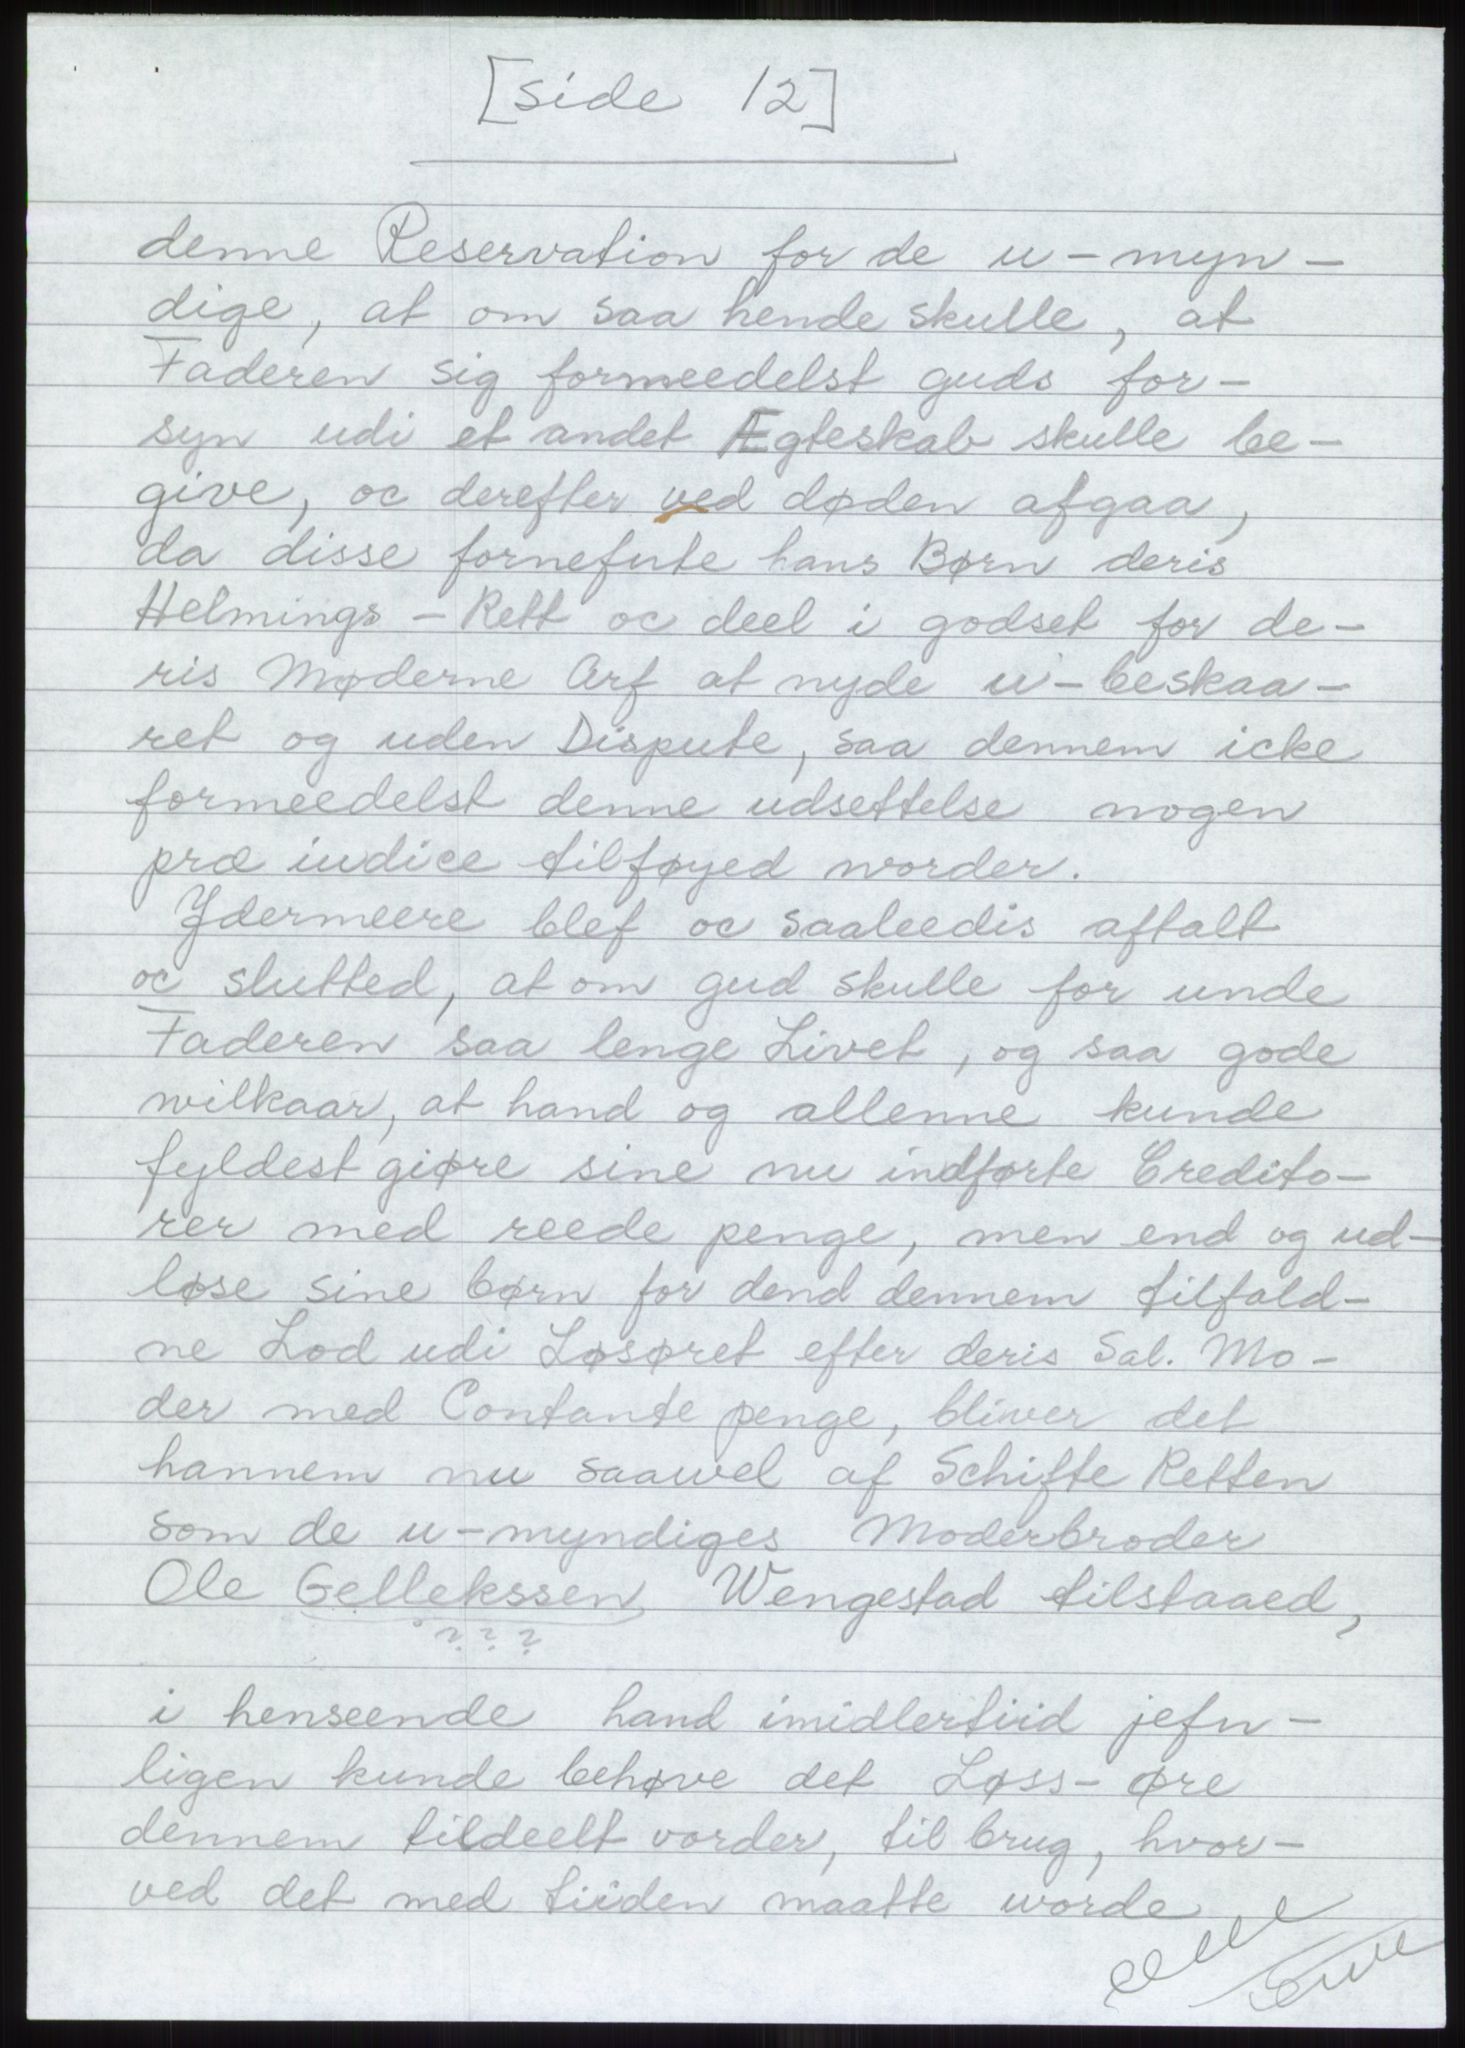 [side 12]
denne Reservation for de u-myn-
dige, at om saa hende skulle, at
Faderen sig formeedelst guds for-
syn udi et andet Ægteskab skulle be-
give, oc derefter ved døden afgaa,
da disse fornefnte hans Børn deris
Helmings-Rett oc deel i godset for de-
ris Møderne Arf at nyde u-beskaa-
ret og uden Dispute, saa dennem icke
formeedelst denne udsettelse nogen
præ iudice tilføyed worder.
Ydermeere blef oc saaleedis aftalt
oc slutted, at om gud skulle for unde
Faderen saa lenge Livet, og saa gode
wilkaar, at hand og allenne kunde
fyldest giøre sine nu indførte Credito-
rer med reede penge, men end og ud-
løse sine børn for dend dennem tilfald-
ne Lod udi Løsøret efter deris Sal. Mo-
der med Contante penge, bliwer det
hannem nu saawel af Schifte Retten
som de u-myndiges Moderbroder
Ole Gellekssen Wengestad tilstaaed,
???
i henseende hand imidlertiid jefn-
ligen kunde behøve det Løss-øre
dennem tildeelt vorder, til brug, hvor-
ved det med tiiden maatte worde